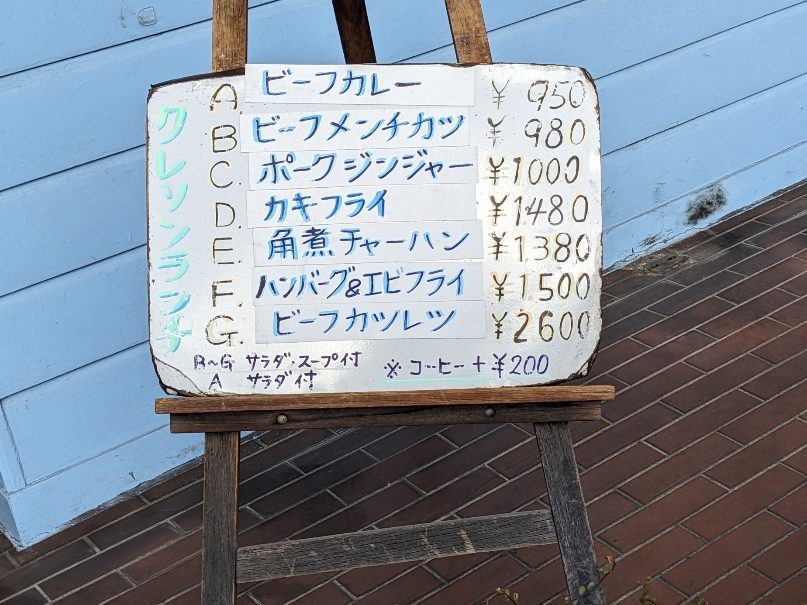 クレソンランチ
A. ビーフカレー ¥950
B. ビーフメンチカツ ¥980
C. ポークジンジャー ¥1000
D. カキフライ ¥1480
E. 角煮チャーハン ¥1380
F. ハンバーグ&エビフライ ¥1500
G. ビーフカツレツ ¥2600
B~G サラダ・スープ付
A サラダ付
※コーヒー+¥200